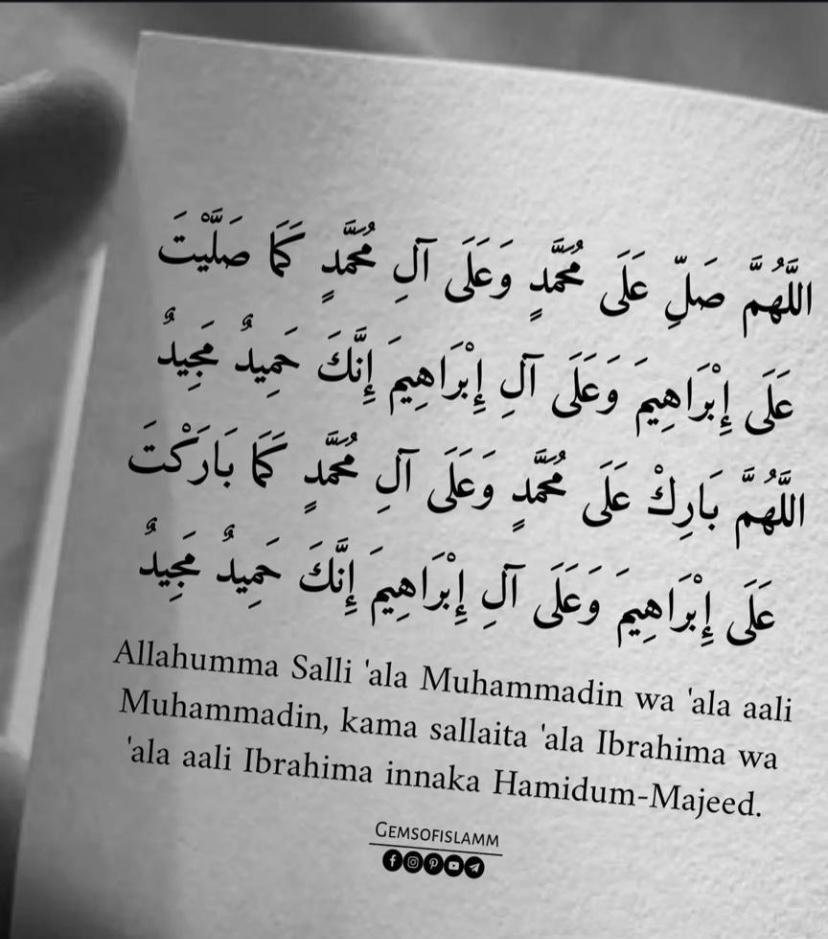 اللَّهُمَّ صَلِّ عَلَى مُحَمَّدٍ وَعَلَى آلِ مُحَمَّدٍ كَمَا صَلَّيْتَ
عَلَى إِبْرَاهِيمَ وَعَلَى آلِ إِبْرَاهِيمَ إِنَّكَ حَمِيدٌ مَجِيدٌ
اللَّهُمَّ بَارِكْ عَلَى مُحَمَّدٍ وَعَلَى آلِ مُحَمَّدٍ كَمَا بَارَكْتَ
عَلَى إِبْرَاهِيمَ وَعَلَى آلِ إِبْرَاهِيمَ إِنَّكَ حَمِيدٌ مَجِيدٌ
Allahumma Salli 'ala Muhammadin wa 'ala aali
Muhammadin, kama sallaita 'ala Ibrahima wa
'ala aali Ibrahima innaka Hamidum-Majeed.
GEMSOFISLAMM